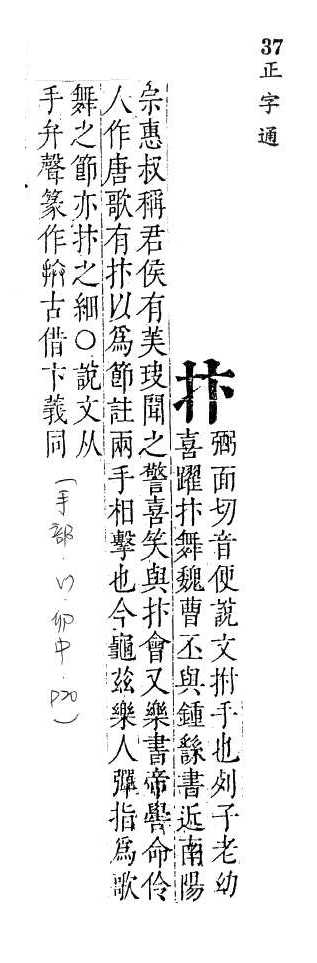 37
正字通
抃
弼面切音便說文拊手也列子老幼
喜躍抃舞魏曹丕與鍾繇書近南陽
宗惠叔稱君侯有美玦聞之警喜笑與抃會又樂書帝嚳命伶
人作唐歌有抃以爲節註兩手相擊也今龜玆樂人彈指爲歌
舞之節亦抃之細○說文从
手弁聲篆作古借卞義同
(手部.以.卯中.P20)